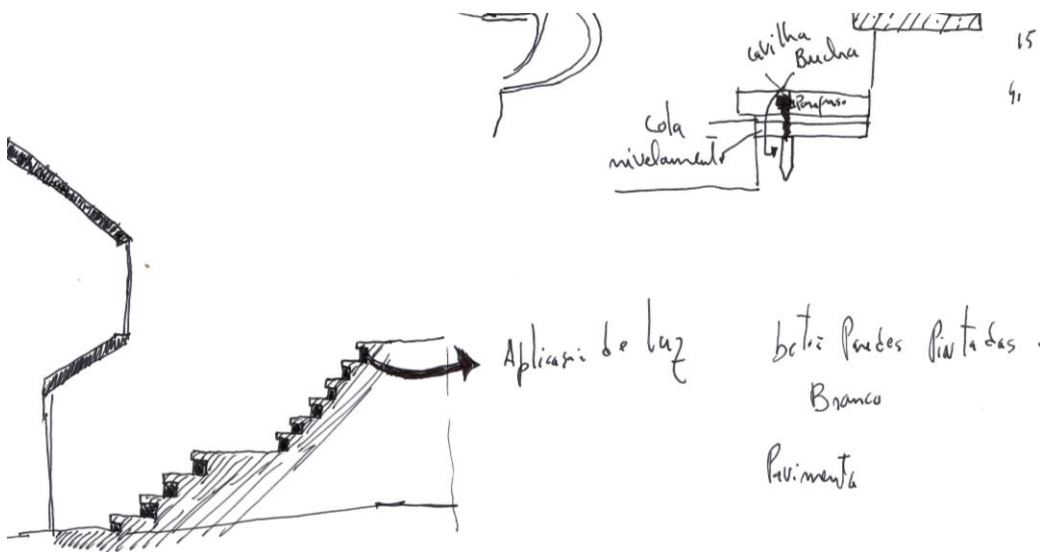 cavilha
Bucha
15
Parafuso
Cola
nivelamento
Aplicação de luz
Paredes Pintadas
Branco
Pavimento